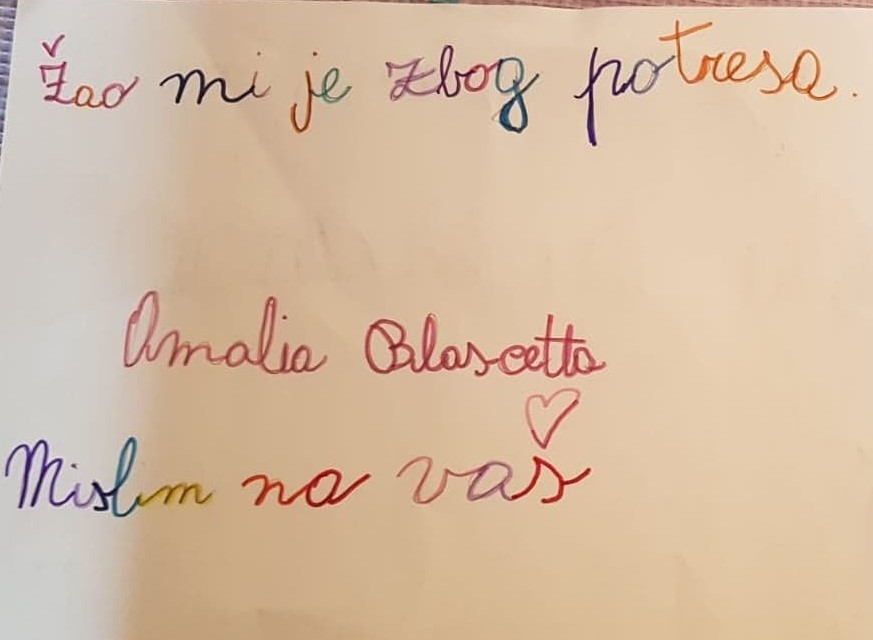 Žao mi je zbog potresa.
Amalia Blascetta
Mislim na vas